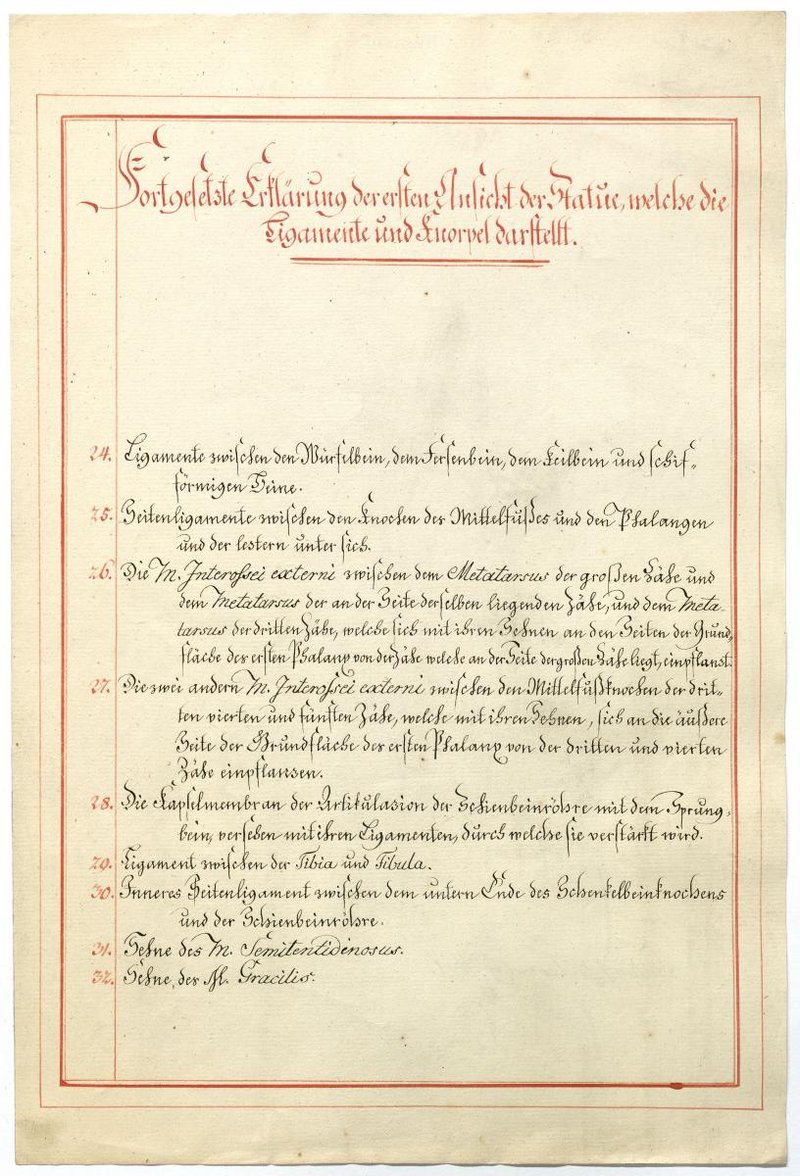 Fortgesetzte Erklärung der ersten Ansicht der Statue, welche die
Ligamente und Knorpel darstellt.
24. Ligamente zwischen den Würfelbein, dem Fersenbein, dem Keilbein und schif-
förmigen Beine.
25. Seitenligamente zwischen den Knochen des Mittelfußes und den Phalangen
und der letztern unter sich.
26. Die M. Interossei externi zwischen dem Metatarsus der großen Zähe und
dem Metatarsus der an der Seite derselben liegenden Zähe, und dem Meta-
tarsus der dritten Zähe, welche sich mit ihren Sehnen an den Seiten der Grund-
fläche des ersten Phalanx von der Zähe welche an der Seite der großen Zähe liegt, einpflanzt.
27. Die zwei andern M. Interossei externi zwischen den Mittelfußknochen der drit-
ten vierten und fünften Zähe, welche mit ihren Sehnen, sich an die äußere
Seite der Grundfläche des ersten Phalanx von der dritten und vierten
Zähe einpflanzen.
28. Die Kapselmembran der Artikulazion der Schienbeinröhre mit dem Sprung-
bein, versehen mit ihren Ligamenten, durch welche sie verstärkt wird.
29. Ligament zwischen der Tibia und Fibula.
30. Inneres Seitenligament zwischen dem untern Ende des Schenkelbeinknochens
und der Schienbeinröhre.
31. Sehne des M. Semitentidinosus.
32. Sehne, des M. Gracilis.